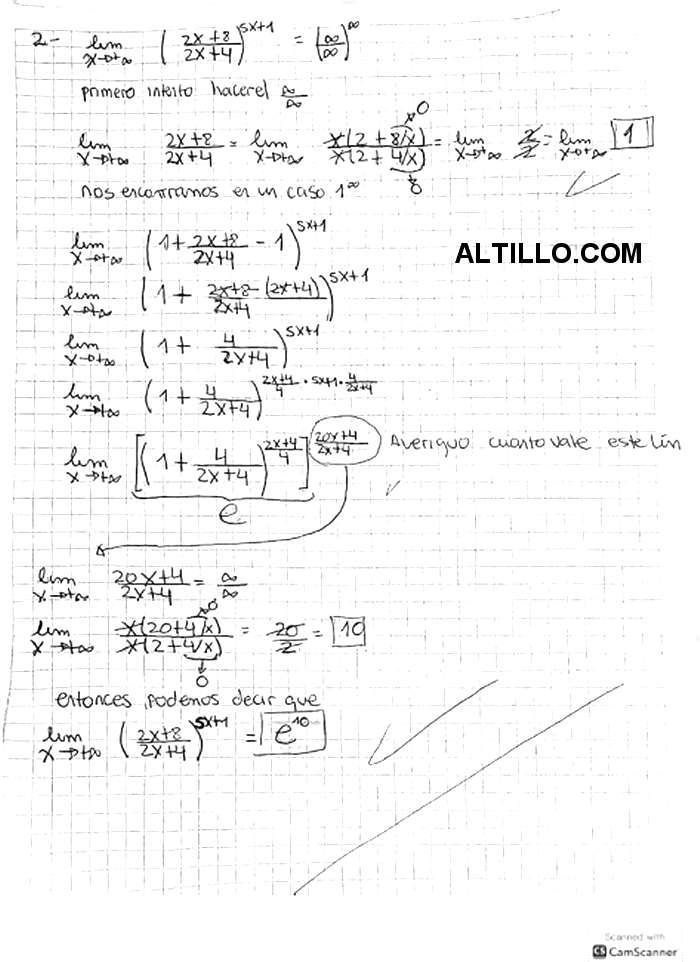 2- lim x→+∞ ( (2x+8)/(2x+4) )^(5x+1) = (∞/∞)^∞
primero intento hacer el ∞/∞
lim x→+∞ (2x+8)/(2x+4) = lim x→+∞ x(2+8/x)/x(2+4/x) = lim x→+∞ 2/2 = lim x→+∞ 1
→0
→0
nos encontramos en un caso 1^∞
lim x→+∞ (1 + (2x+8)/(2x+4) - 1)^(5x+1)
ALTILLO.COM
lim x→+∞ (1 + (2x+8-(2x+4))/(2x+4))^(5x+1)
lim x→+∞ (1 + 4/(2x+4))^(5x+1)
lim x→+∞ (1 + 4/(2x+4))^((2x+4)/4 · 5x+1 · 4/(2x+4))
lim x→+∞ [(1 + 4/(2x+4))^((2x+4)/4)]^((20x+4)/(2x+4)) Averiguo cuanto vale este lim
e
lim x→+∞ (20x+4)/(2x+4) = ∞/∞
lim x→+∞ x(20+4/x)/x(2+4/x) = 20/2 = 10
→0
→0
entonces podemos decir que
lim x→+∞ ( (2x+8)/(2x+4) )^(5x+1) = e^10
Scanned with
CS CamScanner